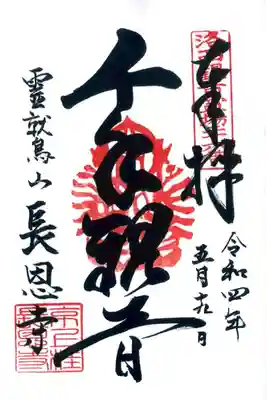 奉拝
令和四年
五月
千手観音
靈鷲山 長恩寺